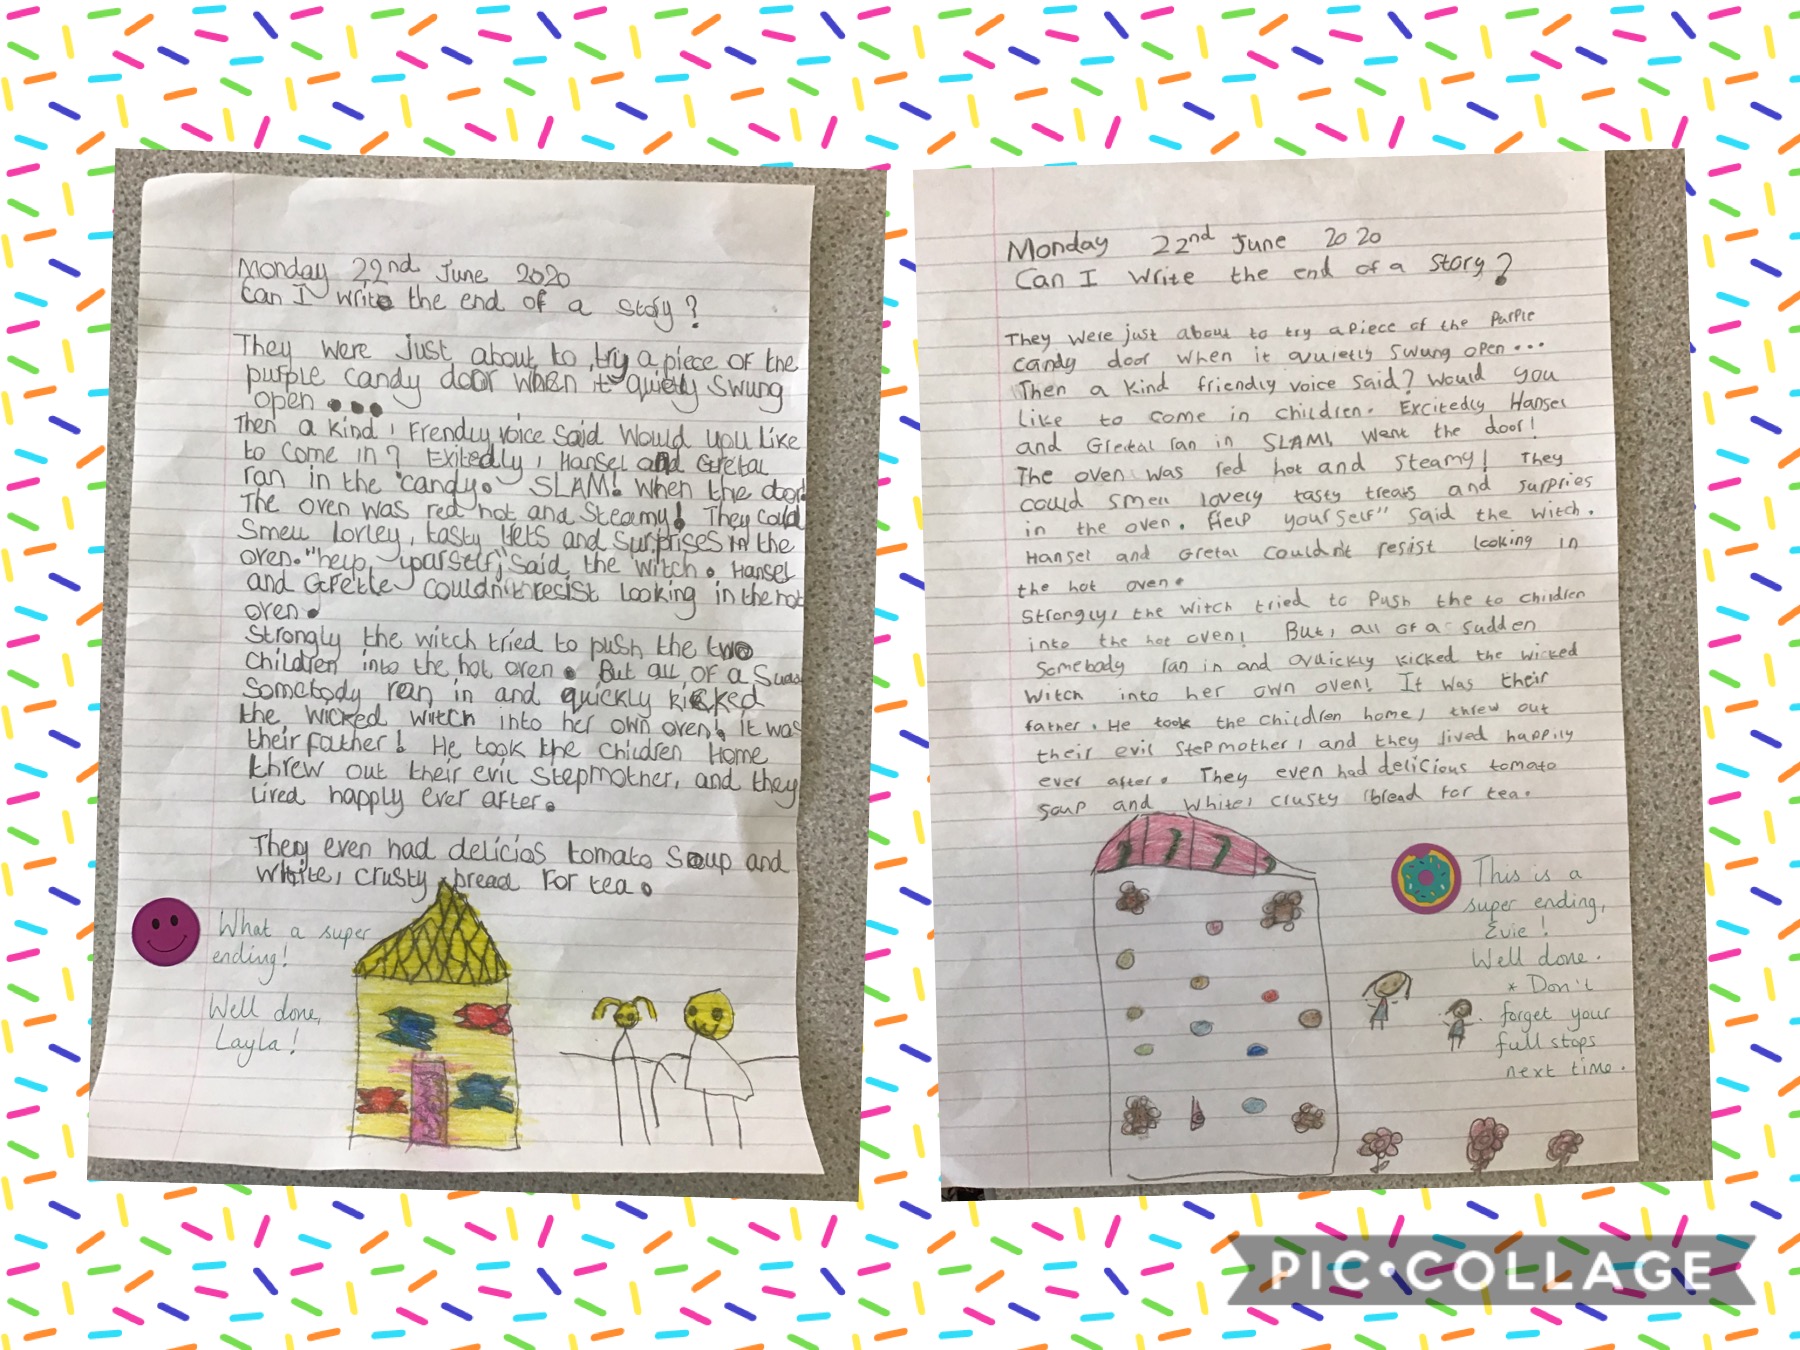 Monday 22nd June 2020
Can I write the end of a story?
They were just about to try a piece of the
purple candy door when it quietly swung
open...
Then a kind, Frendly voice said Would you like
to come in? Exitedly, Hansel and Gretal
ran in the "candy. SLAM! When the door!
The oven was red hot and steamy! They could
smell lovley, tasty
and surprises in the
oven. "help yourself," said the witch. Hansel
and
couldn't resist looking in the hot
oven.
Strongly the witch tried to push the two
children into the hot oven. But all of a
Somebody ran in and quickly kicked
the wicked witch into her own oven! it was
their father! He took the children Home
threw out their evil stepmother, and they
lived happly ever after.
They even had delicios tomato soup and
white, crusty bread For tea.
What a super
ending!
Well done,
Layla!
Monday 22nd June 2020
Can I write the end of a story?
They were just about to try a piece of the purple
candy door when it quietly swung open...
Then a kind friendly voice said? Would you
like to come in children. Excitedly Hansel
and Gretal ran in SLAM! Went the door!
The oven was red hot and steamy! They
could smell lovely tasty treats and surpries
in the oven. Help yourself" said the witch.
Hansel and Gretal couldn't resist looking in
the hot oven.
Strongly, the witch tried to push the to children
into the hot oven! But, all of a sudden
somebody ran in and quickly kicked the wicked
witch into her own oven! It was their
father. He took the children home, threw out
their evil stepmother, and they lived happily
ever after. They even had delicios tomato
soup and white, crusty bread for tea.
This is a
super ending,
Evie!
Well done.
* Don't
forget your
full stops
next time.
PIC•COLLAGE